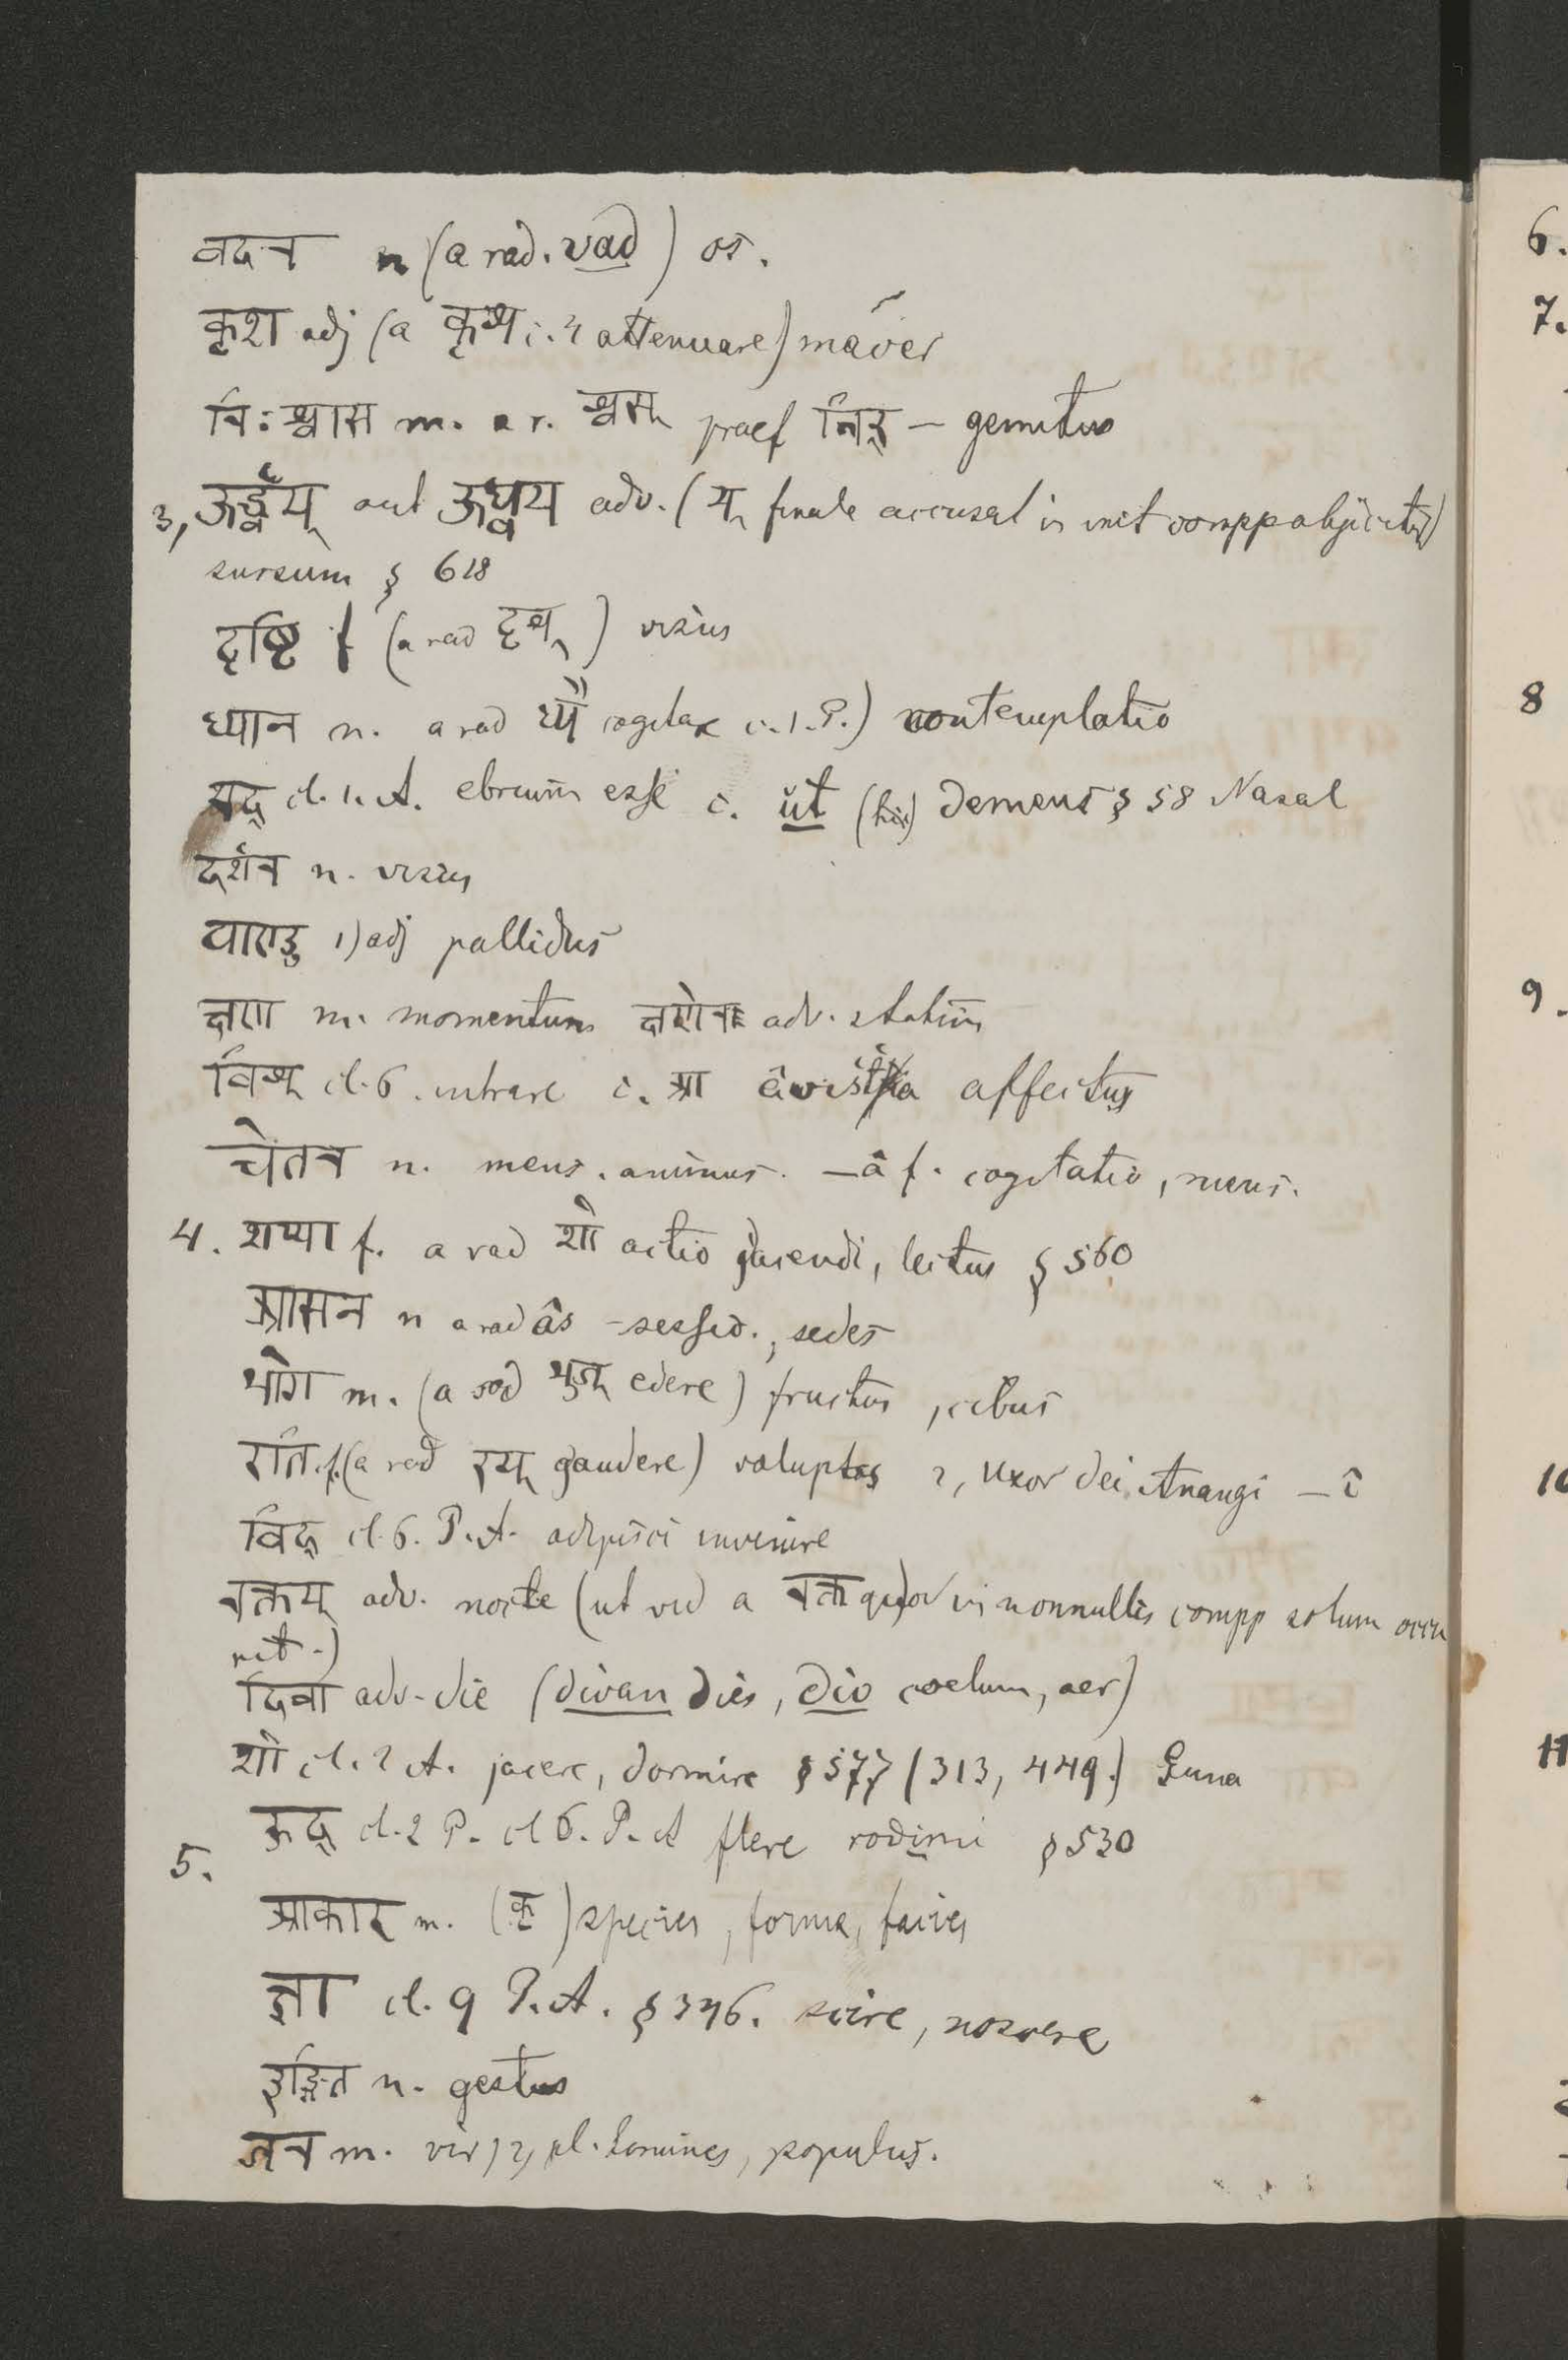 वदन n (a rad. vad) os.
कृश adj (a कृश् c. 4 attenuare) macer
निःश्वास m. a r. श्वस् praef निर् – gemitus
3, ऊर्द्ध्वम् aut ऊर्ध्वम् adv. (म् finale accusat in init compp abjicitur)
sursum § 618
दृष्टि f (a rad दृश्) visus
ध्यान n. a rad ध्यै cogitare c. 1. P.) contemplatio
मद् cl. 1. A. ebrium esse c. ut (hic) demens § 58 Nasal
दर्शन n. visus
पाण्डु 1) adj pallidus
क्षण m. momentum क्षणेन adv. statim
विश् cl. 6. intrare c. आ âvista affectus
चेतन n. mens. animus. – â f. cogitatio, mens.
4. शय्या f. a rad शी actio jacendi, lectus § 560
आसन n a rad âs – sessio., sedes
भोग m. (a rad भुज् edere) fructus, cibus
रति f. (a rad रम् gaudere) voluptas 2, uxor dei Anangi – î
विद् cl. 6. P. A. adipisci invenire
नक्तम् adv. nocte (ut vid a नक्त quod in nonnullis compp solum occu
rit.)
दिवा adv. die (divan dies, div coelum, aer)
शी cl. 2 A. jacere, dormire § 577 (313, 449.) Guna
5. रुद् cl. 2 P. cl 6. P. A flere rodimi § 530
आकार m. (कृ) species, forma, facies
ज्ञा cl. 9 P. A. § 346. scire, noscere
इङ्गित n. gestus
जन m. vir, 2, pl. homines, populus.
6.
7.
8
9.
10
11